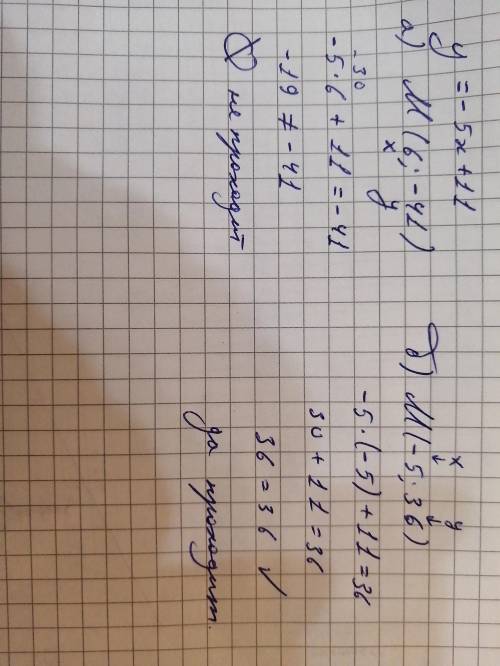 y = -5x + 11
а) М (6; -41)
x y
-30
-5·6 + 11 = -41
-19 ≠ -41
не проходит
б) М(-5; 36)
x y
-5·(-5) + 11 = 36
30 + 11 = 36
36 = 36 ✓
да проходит.